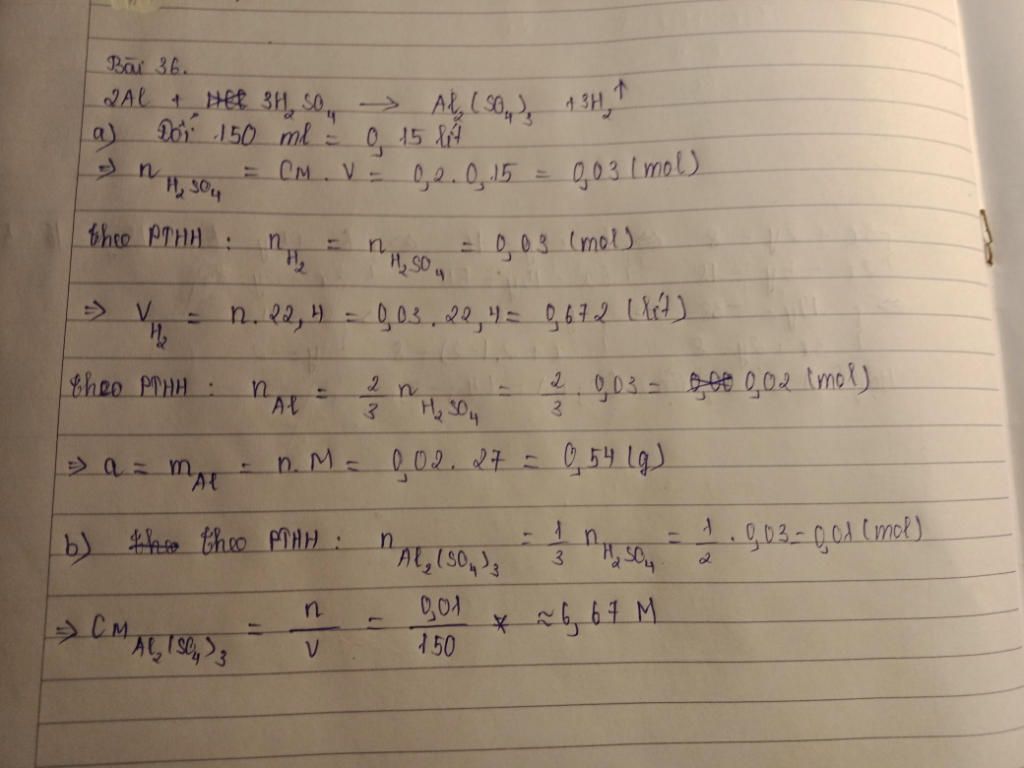 Bài 36.
2Al + 3H₂SO₄ → Al₂(SO₄)₃ + 3H₂↑
a) Đổi 150 ml = 0,15 lít
⇒ n H₂SO₄ = CM . V = 0,2 . 0,15 = 0,03 (mol)
theo PTHH : n H₂ = n H₂SO₄ = 0,03 (mol)
⇒ V H₂ = n . 22,4 = 0,03 . 22,4 = 0,672 (lít)
theo PTHH : n Al = 2/3 n H₂SO₄ = 2/3 . 0,03 = 0,02 (mol)
⇒ a = m Al = n . M = 0,02 . 27 = 0,54 (g)
b) theo PTHH : n Al₂(SO₄)₃ = 1/3 n H₂SO₄ = 1/2 . 0,03 = 0,01 (mol)
⇒ CM Al₂(SO₄)₃ = n/V = 0,01/150 ≈ 6,67 M